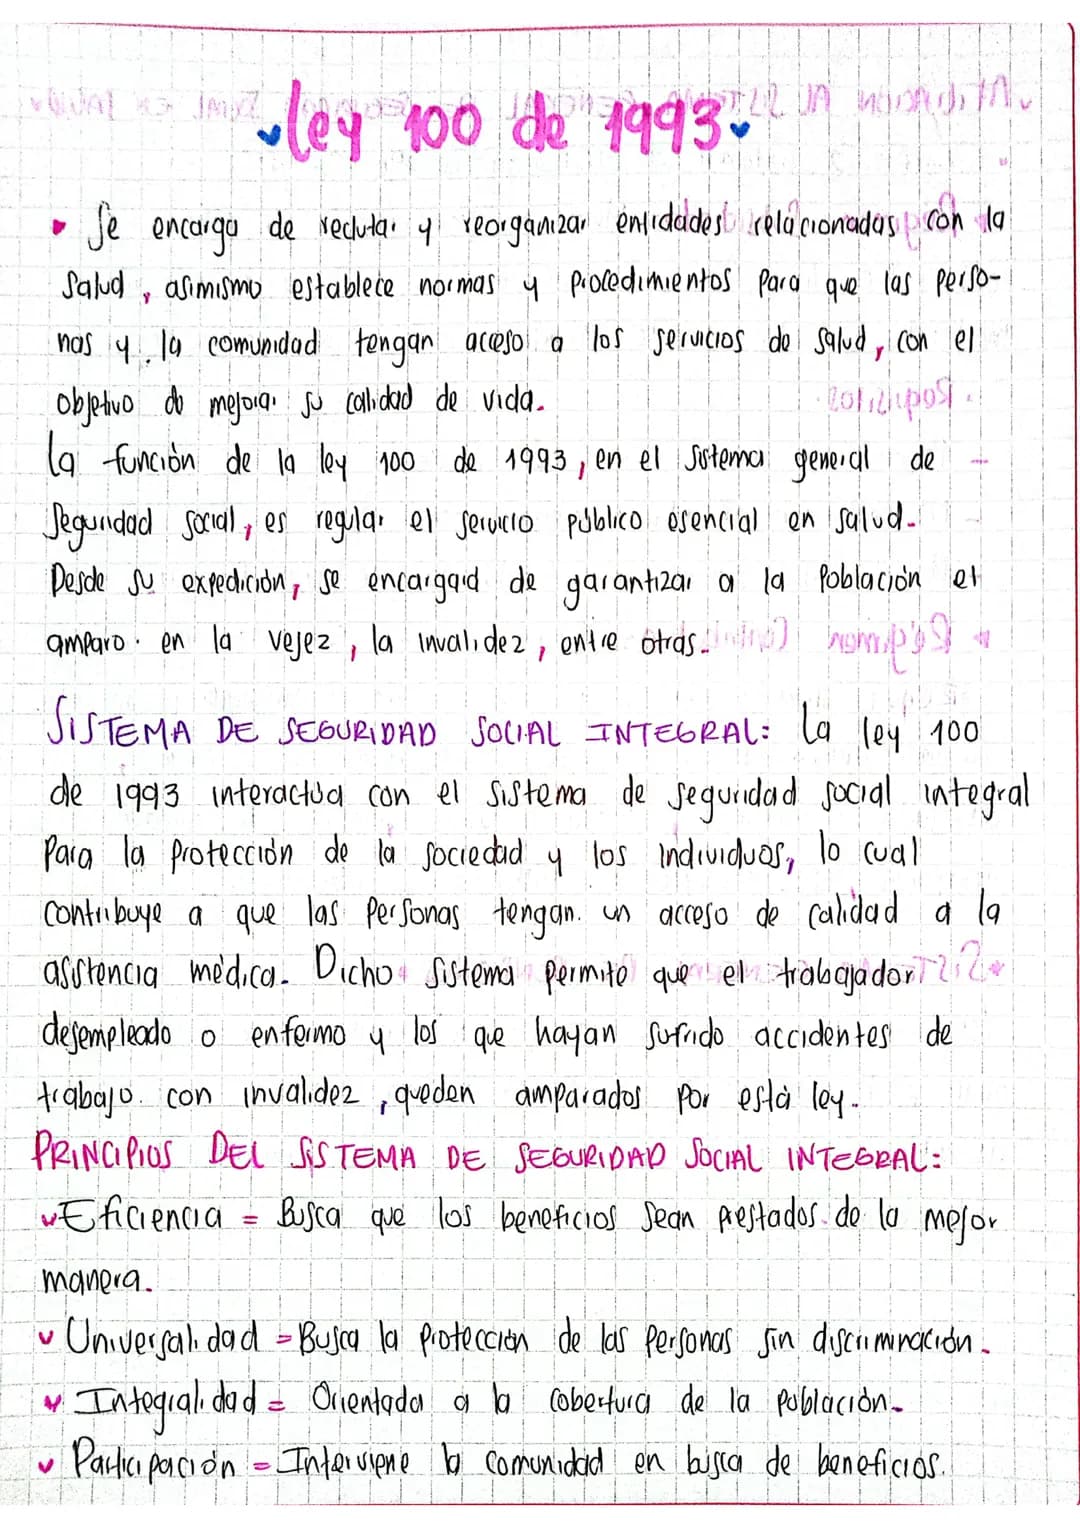 Ley 100 de 1993
• Se encarga de reclutar y reorganizar entidades relacionadas con la
Salud, asimismo establece normas y procedimientos para que las perso-
nas y la comunidad tengan acceso a los servicios de salud, con el
objetivo de mejorar su calidad de vida.
La función de la ley 100 de 1993, en el sistema general de
Seguridad social, es regular el servicio público esencial en salud.
Desde su expedición, se encargará de garantizar a la población el
amparo en la vejez, la invalidez, entre otras.
SISTEMA DE SEGURIDAD SOCIAL INTEGRAL: La ley 100
de 1993 interactúa con el sistema de seguridad social integral
Para la protección de la sociedad y los individuos, lo cual
contribuye a que las personas tengan un acceso de calidad a la
asistencia médica. Dicho sistema permite que el trabajador
desempleado o enfermo y los que hayan sufrido accidentes de
trabajo con invalidez, queden amparados por está ley.
PRINCIPIOS DEL SISTEMA DE SEGURIDAD SOCIAL INTEGRAL:
✓ Eficiencia = Busca que los beneficios sean prestados de la mejor
manera.
✓ Universalidad = Busca la protección de las personas sin discriminación.
✓ Integralidad = Orientada a la cobertura de la población.
✓ Participación = Interviene la comunidad en busca de beneficios.